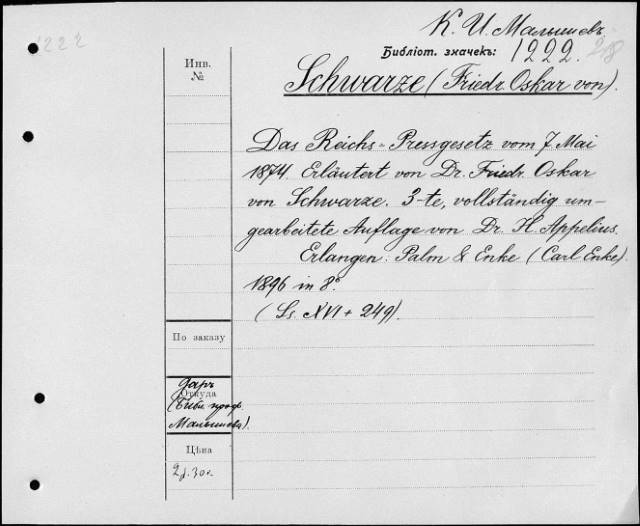 1222
К. И. Малышевъ
Библіот. значекъ: 1222. 28
Инв.
№
Schwarze (Friedr. Oskar von).
Das Reichs-Pressgesetz vom 7. Mai
1874. Erläutert von Dr. Friedr. Oskar
von Schwarze. 3-te, vollständig um-
gearbeitete Auflage von Dr. H. Appelius.
Erlangen: Palm & Enke (Carl Enke).
1896 in 8°.
(Ss. XVI + 249).
По заказу
Даръ
Откуда
(Библ. проф.
Малышева).
Цѣна
2р. 30к.